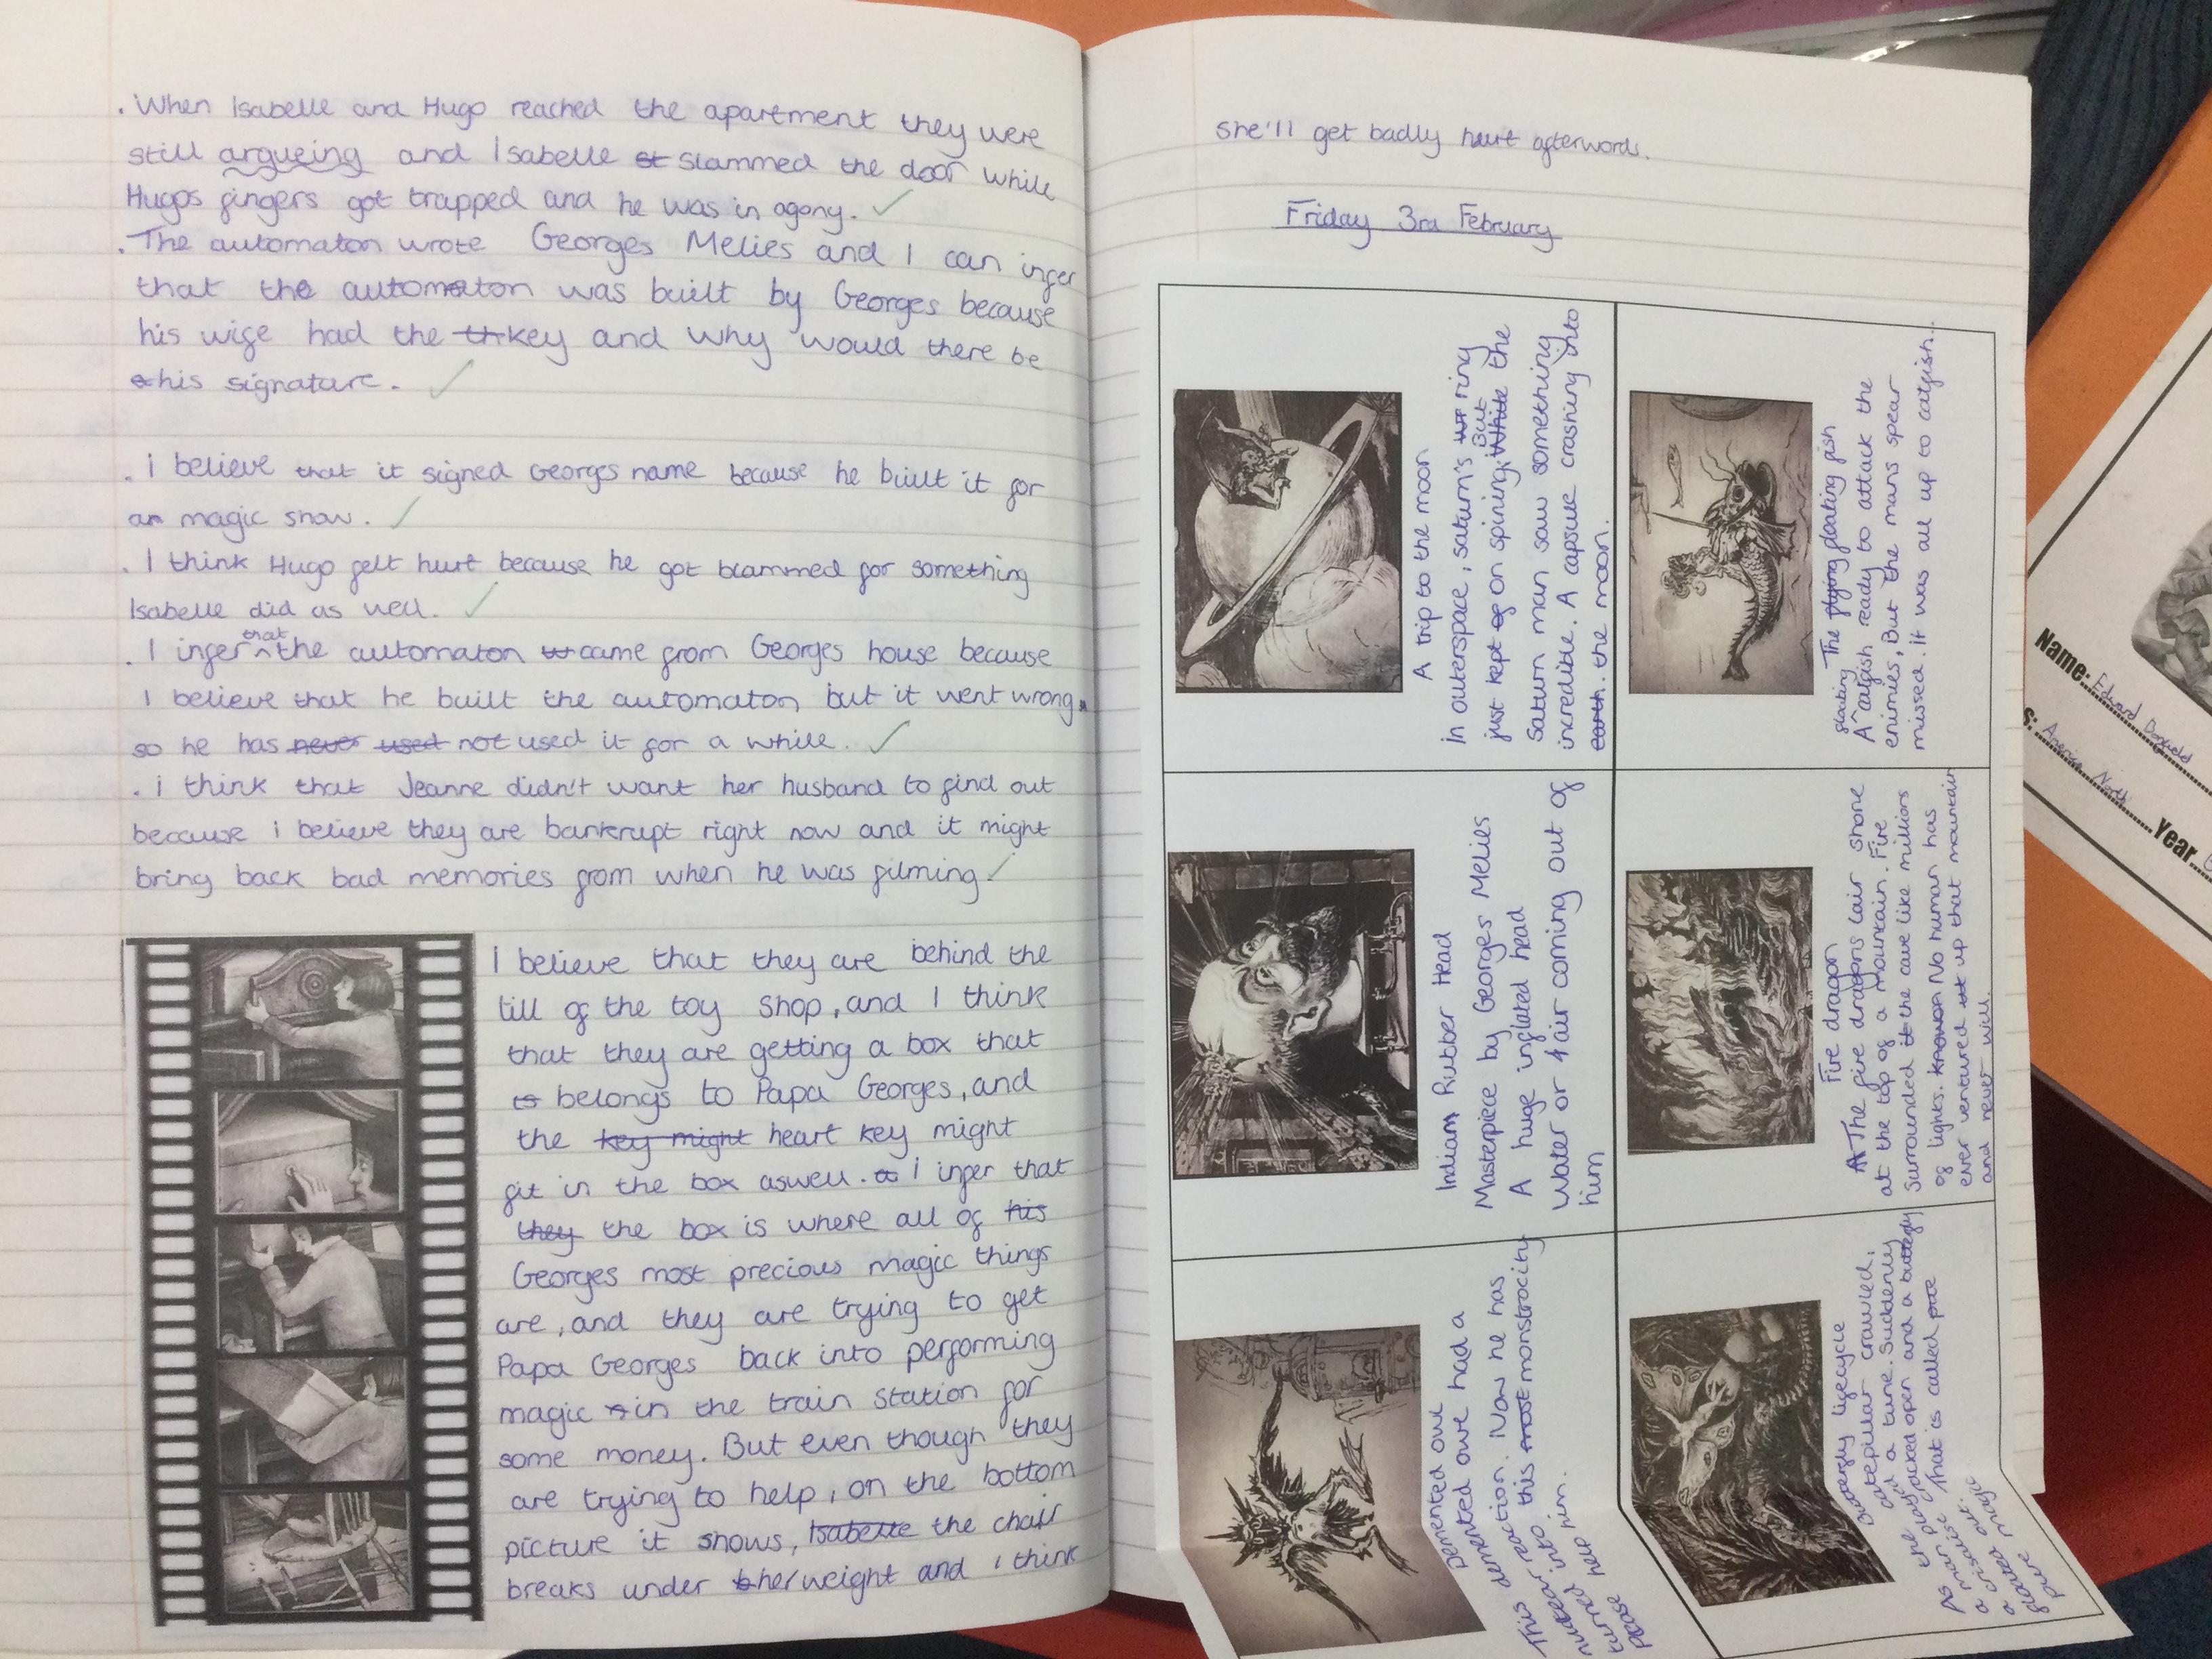 . When Isabelle and Hugo reached the apartment they were
still argueing and Isabelle st slammed the door while
Hugos fingers got trapped and he was in agony.
. The automaton wrote Georges Melies and I can infer
that the automaton was built by Georges because
his wife had the th key and why would there be
a his signature.
. i believe that it signed Georges name because he built it for
an magic show.
. I think Hugo felt hurt because he got blammed for something
Isabelle did as well.
. I infer that the automaton came from Georges house because
I believe that he built the automaton but it went wrong
so he has never used not used it for a while.
. i think that Jeanne didn't want her husband to find out
because i believe they are bankrupt right now and it might
bring back bad memories from when he was filming.
I believe that they are behind the
till of the toy shop, and I think
that they are getting a box that
is belongs to Papa Georges, and
the key might heart key might
fit in the box aswell. I infer that
they the box is where all of his
Georges most precious magic things
are, and they are trying to get
Papa Georges back into performing
magic in the train station for
some money. But even though they
are trying to help, on the bottom
picture it shows, Isabelle the chair
breaks under her weight and i think
she'll get badly hurt afterwords.
Friday 3rd February
A trip to the moon
In outerspace, saturn's ring
just kept on spining. While But the
Saturn man saw something
incredible. A capsule crashing into
earth. the moon.
The flying floating fish
A floating catfish ready to attack the
enimies, But the mans spear
missed. it was all up to catfish...
Indian Rubber Head
Masterpiece by Georges Melies
A huge inflated head
Water or air coming out of
him
Fire dragon
A The fire dragons lair shone
at the top of a mountain. Fire
surrounded it the cave like millions
of lights. known No human has
ever ventured up that mountain
and never will.
Demented owl
This demented owl had a
nuclear reaction. Now he has
turned into this monstrocity
please help him.
butterfly lifecycle
catepillar crawled,
a tune. Suddenly
the open and a butterfly
As man That is called
a
a magic
pure
Name: Edward
America North
Year